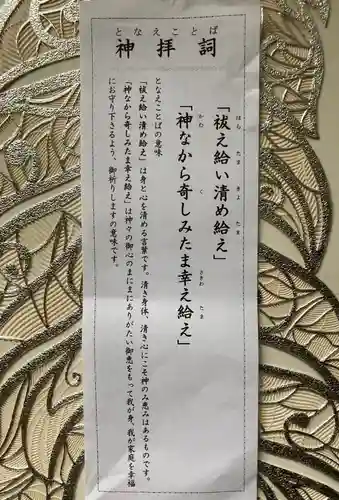 となえことば
神拝詞
「祓え給い清め給え」
はら たま きよ たま
「神ながら奇しみたま幸え給え」
かむ く さきわ たま
となえことばの意味
「祓え給え清め給え」は身と心を清める言葉です。清き身体、清き心にこそ神のみ恵みはあるものです。
「神ながら奇しみたま幸え給え」は神々の御心のまにまにありがたい御恵をもって我が身、我が家庭を幸福
にお守り下さるよう、御祈りしますの意味です。